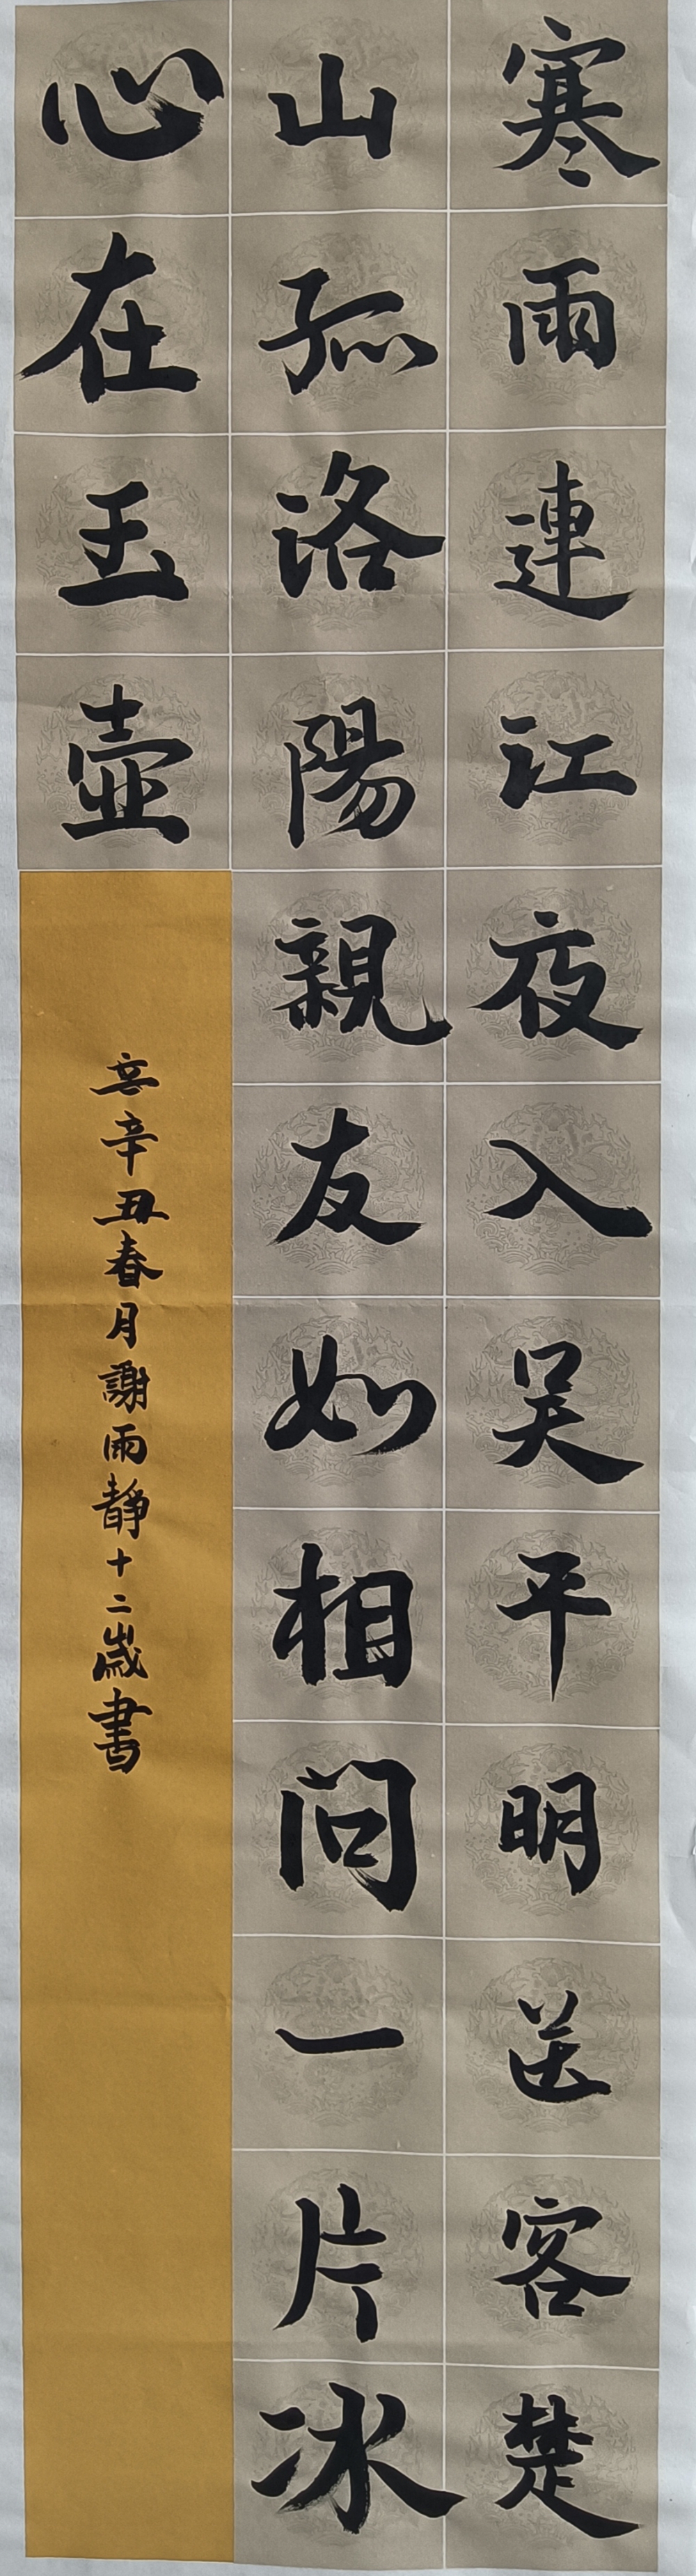 寒雨連江夜入吴平明送客楚
山孤洛陽親友如相問一片冰
心在玉壷
辛丑春月謝雨靜十二歲書